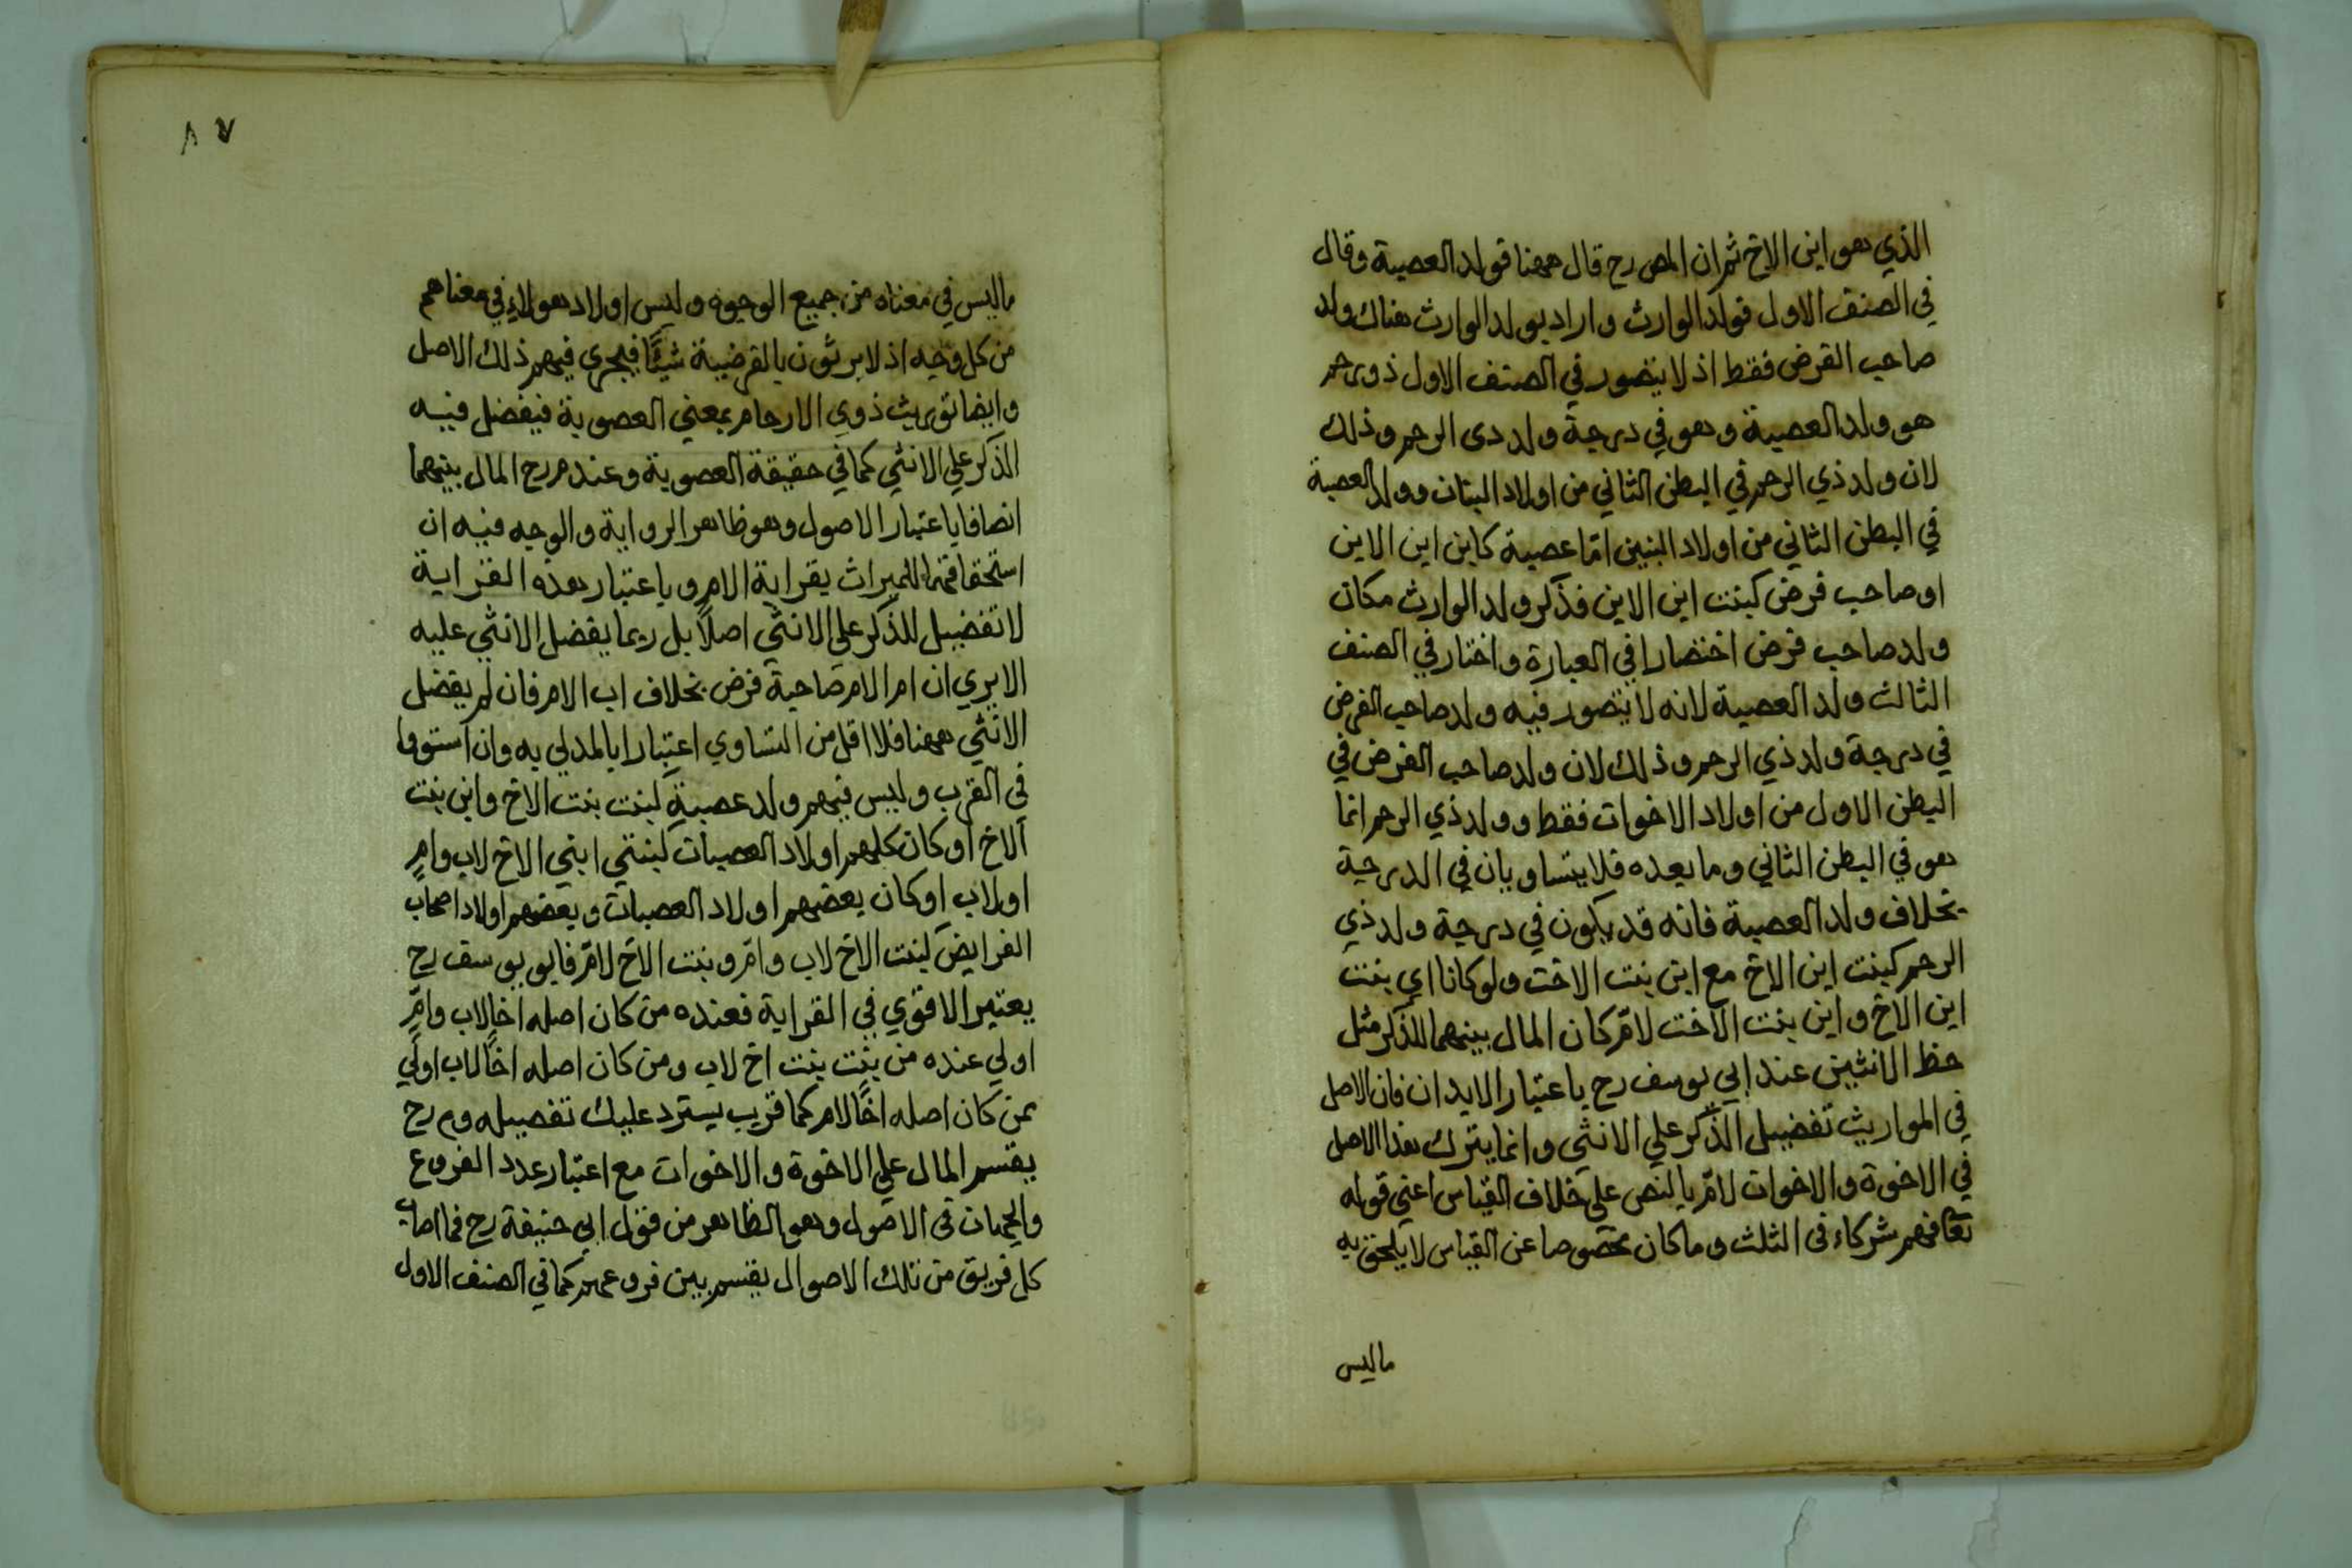 الذي هو ابن الاخ ثم ان المص رح قال ههنا فولد العصبة وقال
في الصنف الاول فولد الوارث واراد بولد الوارث هناك ولد
صاحب الفرض فقط اذ لا يتصور في الصنف الاول ذورحم
هو ولد العصبة وهو في درجة ولد دى الرحم وذلك
لان ولد ذي الرحم في البطن الثاني من اولاد البنات وولد العصبة
في البطن الثاني من اولاد البنين امّا عصبة كابن ابن الابن
او صاحب فرض كبنت ابن الابن فذكر ولد الوارث مكان
ولد صاحب فرض اختصارا في العبارة واختار في الصنف
الثالث ولد العصبة لانه لا يتصور فيه ولد صاحب الفرض
في درجة ولد ذي الرحم وذلك لان ولد صاحب الفرض في
البطن الاول من اولاد الاخوات فقط وولد ذي الرحم انما
هو في البطن الثاني وما بعده فلا يتساويان في الدرجة
بخلاف ولد العصبة فانه قد يكون في درجة ولد ذي
الرحم كبنت ابن الاخ مع ابن بنت الاخت ولو كانا اي بنت
ابن الاخ وابن بنت الاخت لامّ كان المال بينهما للذكر مثل
حظ الانثيين عند ابي يوسف رح باعتبار الابدان فان الاصل
في المواريث تفضيل الذّكر علي الانثى وانما يترك هذا الاصل
في الاخوة والاخوات لامّ بالنص على خلاف القياس اعني قوله
تعا فهم شركاء في الثلث وما كان مخصوصا عن القياس لا يلحق به
ماليس
٨٧
ماليس في معناه من جميع الوجوه وليس اولاد هولاء في معناهم
من كل وجه اذ لا يرثون بالفرضية شيئًا فيجري فيهم ذلك الاصل
وايضا توريث ذوي الارحام بمعني العصوبة فيفضل فيه
الذكر علي الانثي كما في حقيقة العصوبة وعند م رح المال بينهما
انصافا باعتبار الاصول وهو ظاهر الرواية والوجه فيه ان
استحقاقهما للميراث بقرابة الام وباعتبار هذه القرابة
لا تفضيل للذّكر على الانثي اصلاً بل ربما يفضل الانثي عليه
الا يري ان ام الام صاحبة فرض بخلاف اب الام فان لم يفضل
الانثي ههنا فلا اقل من التساوي اعتبارا بالمدلي به وان استووا
في القرب وليس فيهم ولد عصبة كبنت بنت الاخ وابن بنت
الاخ او كان كلهم اولاد العصبات كبنتي ابني الاخ لاب وام
او لاب او كان بعضهم اولاد العصبات وبعضهم اولاد اصحاب
الفرايض كبنت الاخ لاب وامّ وبنت الاخ لامّ فابو يوسف رح
يعتبر الاقوي في القرابة فعنده من كان اصله اخا لاب وامّ
اولي عنده من بنت بنت اخ لاب ومن كان اصله اخًا لاب اولي
ممن كان اصله اخًا لام كما قريب يسترد عليك تفصيله وم رح
يقسم المال علي الاخوة والاخوات مع اعتبار عدد الفروع
والجهات في الاصول وهو الظاهر من قول ابي حنيفة رح فما اصاب
كل فريق من تلك الاصول يقسم بين فروعهم كما في الصنف الاول